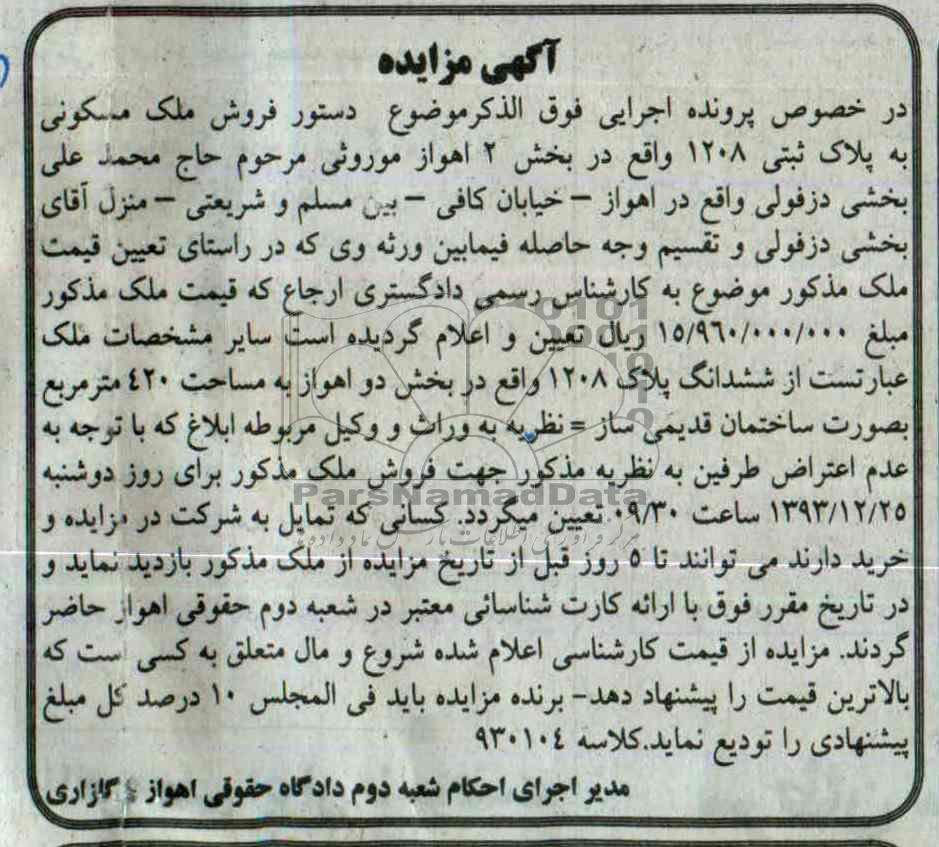 آگهی مزایده
در خصوص پرونده اجرایی فوق الذکرموضوع دستور فروش ملک مسکونی
به پلاک ثبتی ۱۲۰۸ واقع در بخش ۲ اهواز موروثی مرحوم حاج محمد علی
بخشی دزفولی واقع در اهواز – خیابان کافی – بین مسلم و شریعتی – منزل آقای
بخشی دزفولی و تقسیم وجه حاصله فیمابین ورثه وی که در راستای تعیین قیمت
ملک مذکور موضوع به کارشناس رسمی دادگستری ارجاع که قیمت ملک مذکور
مبلغ ۱۵/۹۶۰/۰۰۰/۰۰۰ ریال تعیین و اعلام گردیده است سایر مشخصات ملک
عبارتست از ششدانگ پلاک ۱۲۰۸ واقع در بخش دو اهواز به مساحت ۴۲۰ مترمربع
بصورت ساختمان قدیمی ساز = نظریه به وراث و وکیل مربوطه ابلاغ که با توجه به
عدم اعتراض طرفین به نظریه مذکور جهت فروش ملک مذکور برای روز دوشنبه
ParsNamadData
۱۳۹۳/۱۲/۲۵ ساعت ۰۹/۳۰ تعیین میگردد. کسانی که تمایل به شرکت در مزایده و
خرید دارند می توانند تا ۵ روز قبل از تاریخ مزایده از ملک مذکور بازدید نماید و
در تاریخ مقرر فوق با ارائه کارت شناسائی معتبر در شعبه دوم حقوقی اهواز حاضر
گردند. مزایده از قیمت کارشناسی اعلام شده شروع و مال متعلق به کسی است که
بالاترین قیمت را پیشنهاد دهد- برنده مزایده باید فی المجلس ۱۰ درصد کل مبلغ
پیشنهادی را تودیع نماید.کلاسه ۹۳۰۱۰۴
مدیر اجرای احکام شعبه دوم دادگاه حقوقی اهواز گلزاری